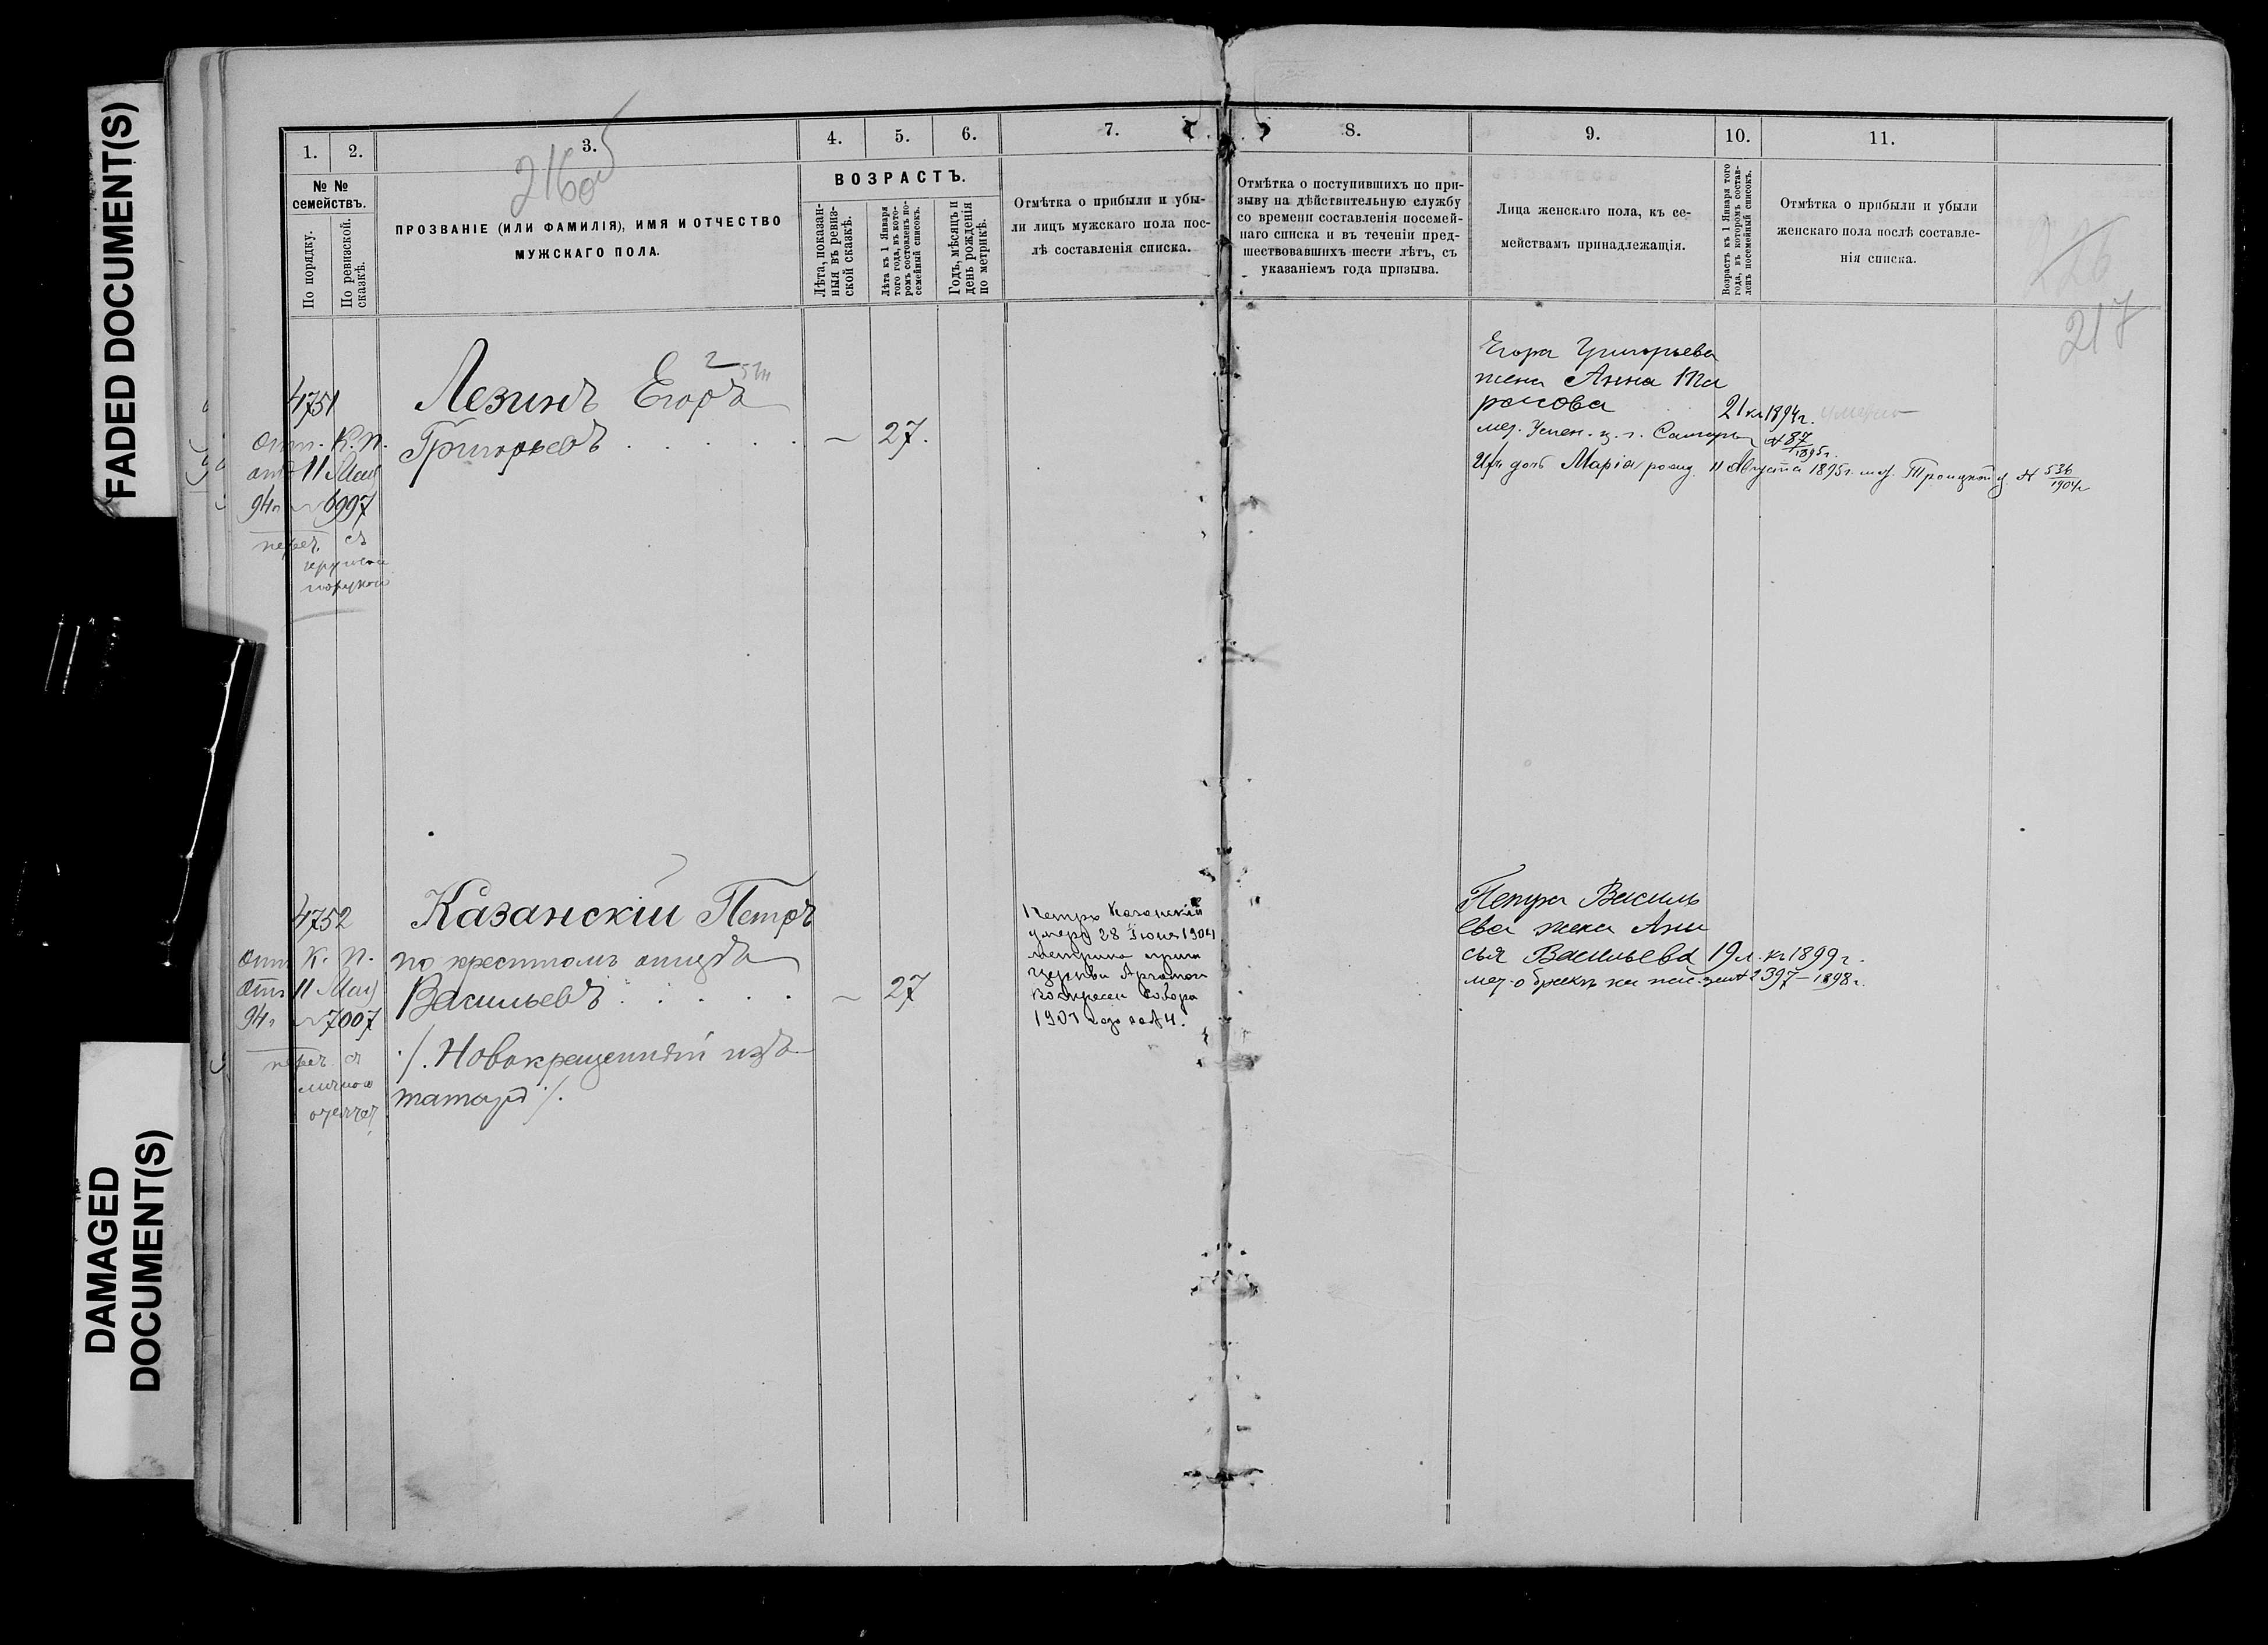 FADED DOCUMENT(S)
DAMAGED
DOCUMENT(S)
1.
2.
3.
4.
5.
6.
7.
8.
9.
10.
11.
216об
№ №
семействъ.
По порядку.
По ревизской
сказкѣ.
ПРОЗВАНІЕ (ИЛИ ФАМИЛІЯ), ИМЯ И ОТЧЕСТВО
МУЖСКАГО ПОЛА.
ВОЗРАСТЪ.
Лѣта, показан-
ныя въ ревиз-
ской сказкѣ.
Лѣта къ 1 Января
того года, въ кото-
ромъ составленъ по-
семейный списокъ.
Годъ, мѣсяцъ и
день рожденія
по метрикѣ.
Отмѣтка о прибыли и убы-
ли лицъ мужскаго пола пос-
лѣ составленія списка.
Отмѣтка о поступившихъ по при-
зыву на дѣйствительную службу
со времени составленія посемей-
наго списка и въ теченіи пред-
шествовавшихъ шести лѣтъ, съ
указаніемъ года призыва.
Лица женскаго пола, къ се-
мействамъ принадлежащія.
Возрастъ къ 1 Января того
года, въ которомъ состав-
ленъ посемейный списокъ.
Отмѣтка о прибыли и убыли
женскаго пола послѣ составле-
нія списка.
226
217
4751
К. П.
отъ 11 Мая
94 г. № 6997
переч. съ
круговой
порукой
2
Лезинъ Егоръ
Григорьевъ . . . . . — 27.
Егора Григорьева
жена Анна Ма
ркова 21 къ 1894 г. умерла
мет. Успен. ц. г. Самары № 87/1895 г.
Ихъ дочь Марія рожд. 11 Августа 1895 г. мет. Троицкой ц № 536/1904 г
4752
К. П.
отъ 11 Мая
94 г № 7007
переч съ
личною
Казанскій Петръ
по крестномъ отцѣ
Васильевъ . . . . . — 27
/. Новокрещенный изъ
татаръ /.
Петръ Казанскій
умеръ 28 Іюня 1904
метрика прич
церкви
Воскресен Собора
190 года за № 4.
Петра Василь
ева жена Ани
сья Васильева 19 л. къ 1899 г.
мет. о бракѣ 397 — 1898 г.